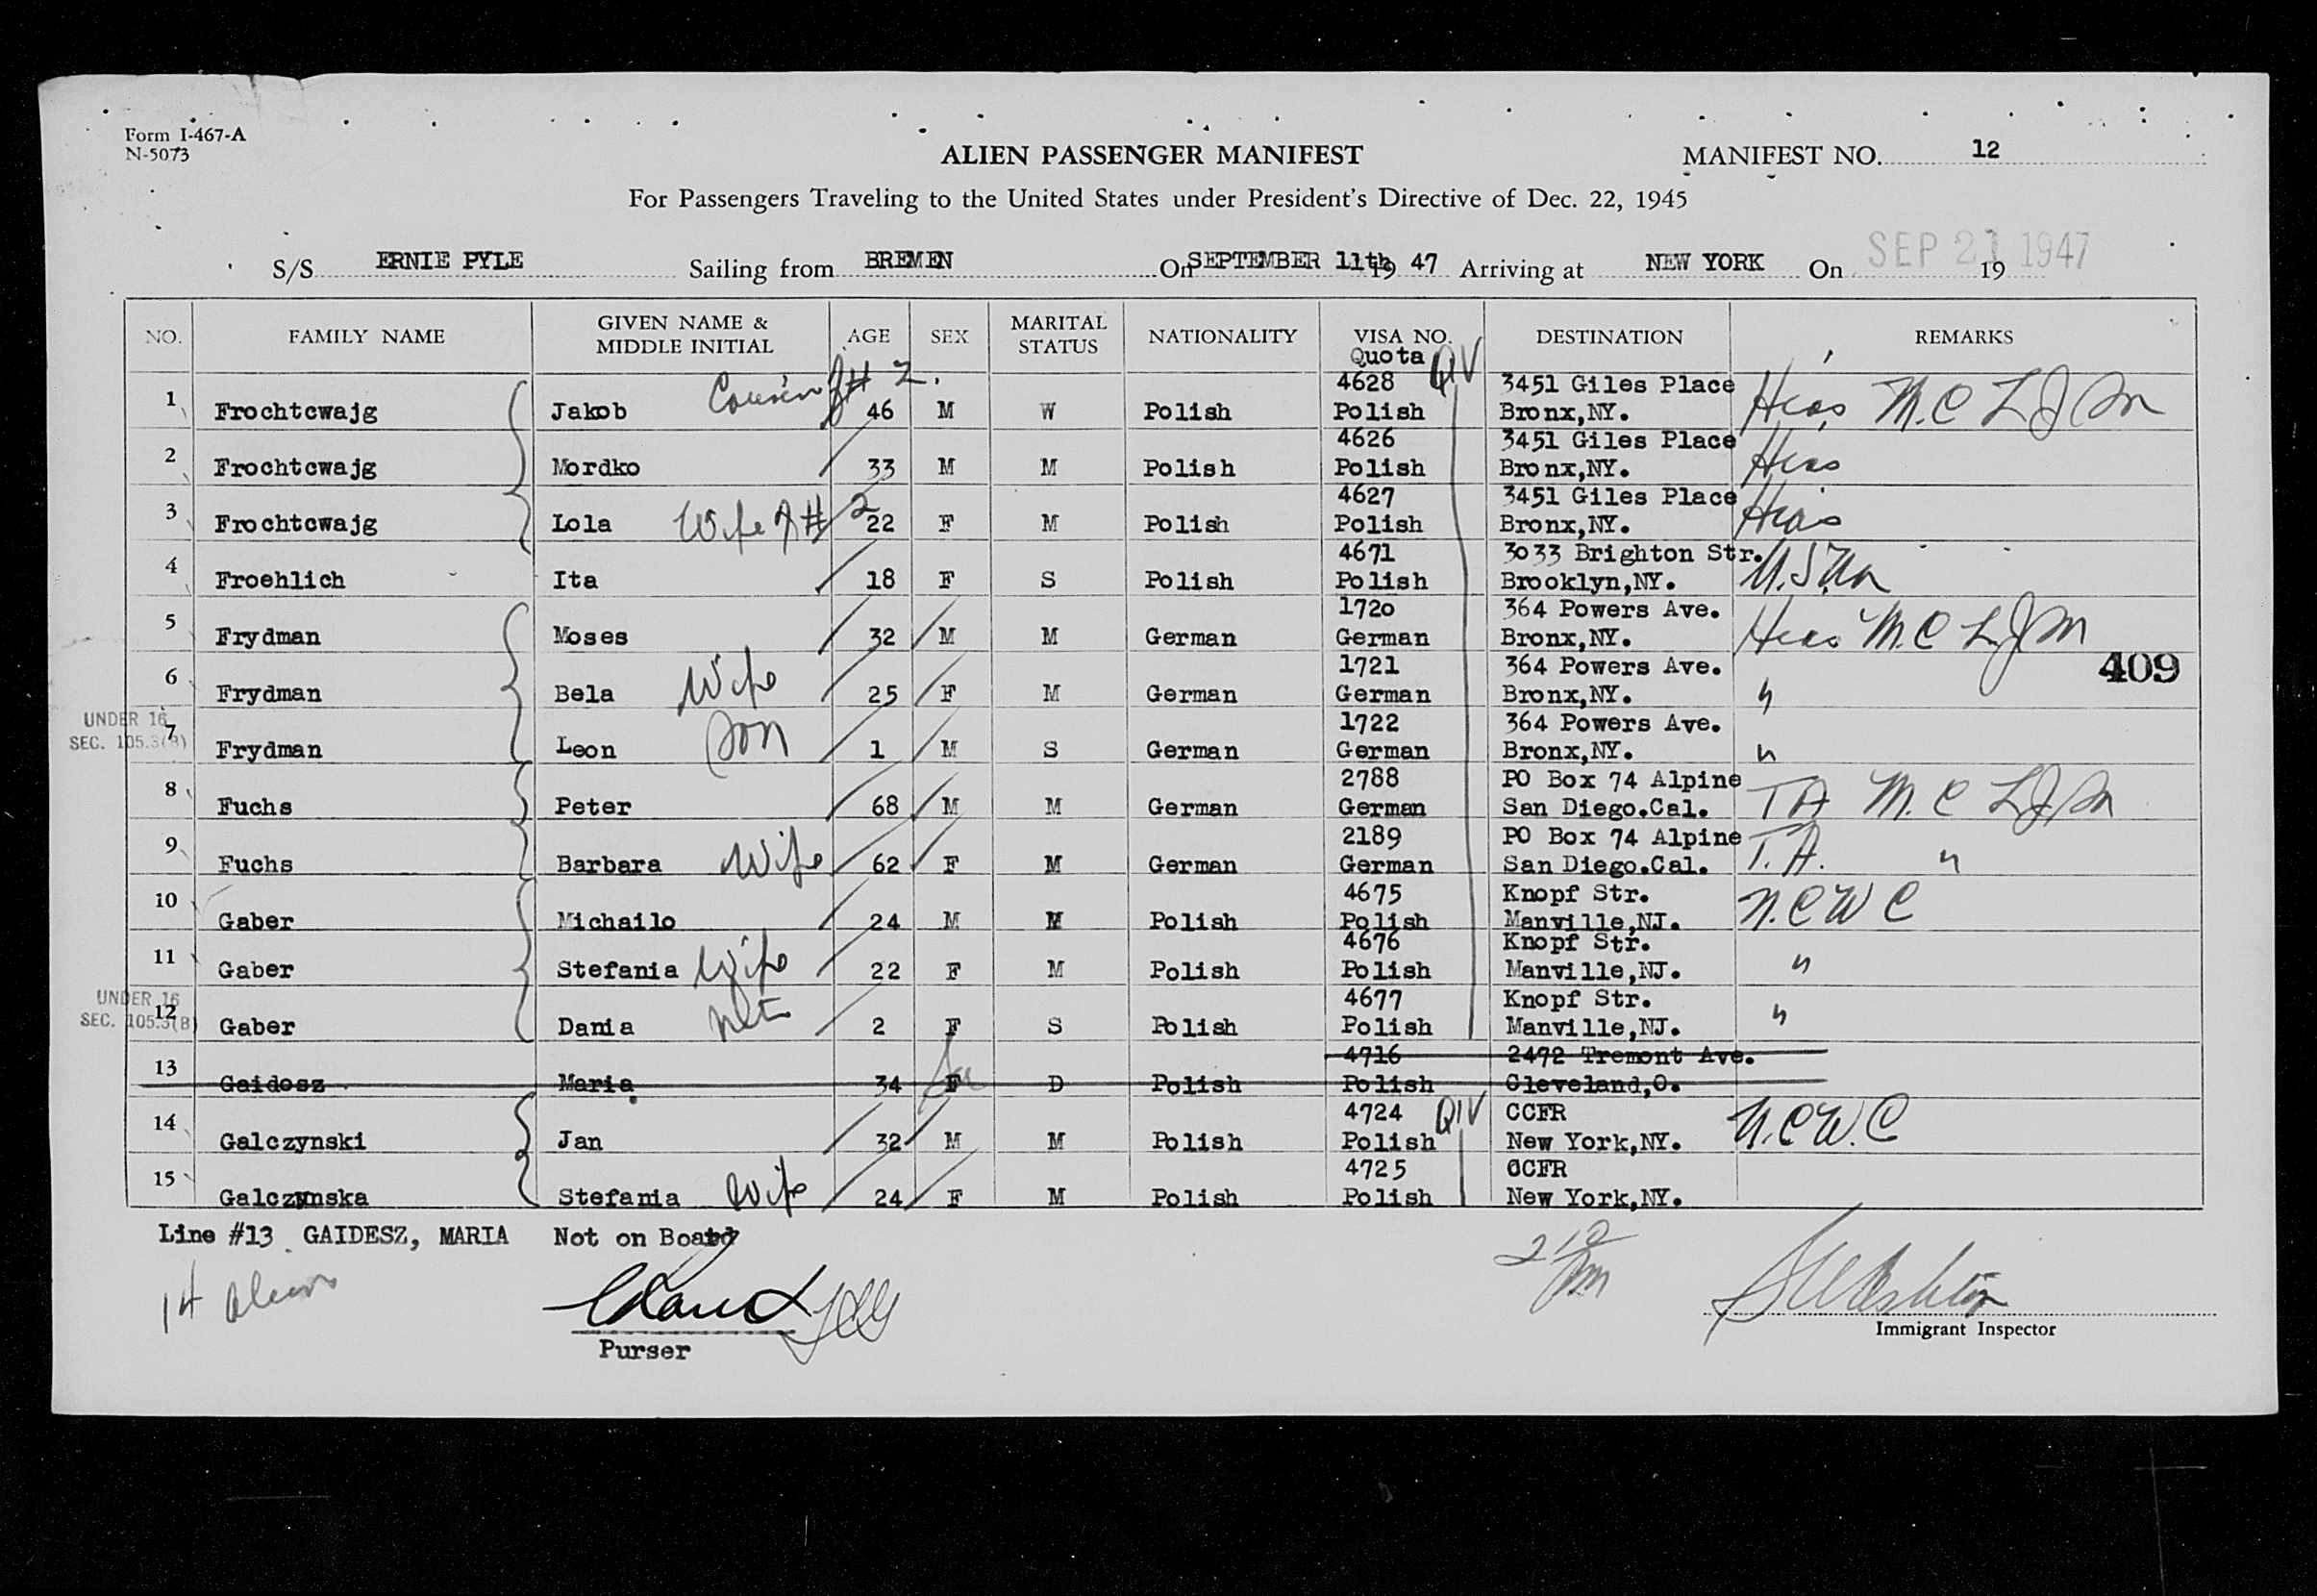 Form I-467-A
N-5073
ALIEN PASSENGER MANIFEST
MANIFEST NO. 12
For Passengers Traveling to the United States under President's Directive of Dec. 22, 1945
S/S ERNIE PYLE Sailing from BREMEN On SEPTEMBER 11th 19 47 Arriving at NEW YORK On SEP 21 1947 19
NO. FAMILY NAME GIVEN NAME & MIDDLE INITIAL AGE SEX MARITAL STATUS NATIONALITY VISA NO. DESTINATION REMARKS
Quota QIV
Cousin of # 2. 4628 3451 Giles Place
1 Frochtcwajg Jakob 46 M W Polish Polish Bronx,NY. Hias M.C L J M
4626 3451 Giles Place
2 Frochtcwajg Mordko 33 M M Polish Polish Bronx,NY. Hias
4627 3451 Giles Place
3 Frochtcwajg Lola Wife of # 2 22 F M Polish Polish Bronx,NY. Hias
4671 3033 Brighton Str.
4 Froehlich Ita 18 F S Polish Polish Brooklyn,NY.
1720 364 Powers Ave.
5 Frydman Moses 32 M M German German Bronx,NY. Hias M.C L J M
409
1721 364 Powers Ave.
6 Frydman Bela Wife 25 F M German German Bronx,NY. "
UNDER 16 SEC. 105.3(B)
1722 364 Powers Ave.
7 Frydman Leon Son 1 M S German German Bronx,NY. "
2788 PO Box 74 Alpine
8 Fuchs Peter 68 M M German German San Diego.Cal. TA M.C L J M
2189 PO Box 74 Alpine
9 Fuchs Barbara Wife 62 F M German German San Diego.Cal. T.A. "
4675 Knopf Str.
10 Gaber Michailo 24 M M Polish Polish Manville,NJ. N.C W C
4676 Knopf Str.
11 Gaber Stefania Wife 22 F M Polish Polish Manville,NJ. "
UNDER 16 SEC. 105.3(B)
4677 Knopf Str.
12 Gaber Dania 2 F S Polish Polish Manville,NJ. "
4716 2472 Tremont Ave.
13 Gaidosz Maria 34 F D Polish Polish Cleveland,O.
4724 QIV CCFR
14 Galczynski Jan 32 M M Polish Polish New York,NY. N.C.W.C
4725 CCFR
15 Galczynska Stefania Wife 24 F M Polish Polish New York,NY.
Line #13 GAIDESZ, MARIA Not on Board
14 aliens
Purser
Immigrant Inspector